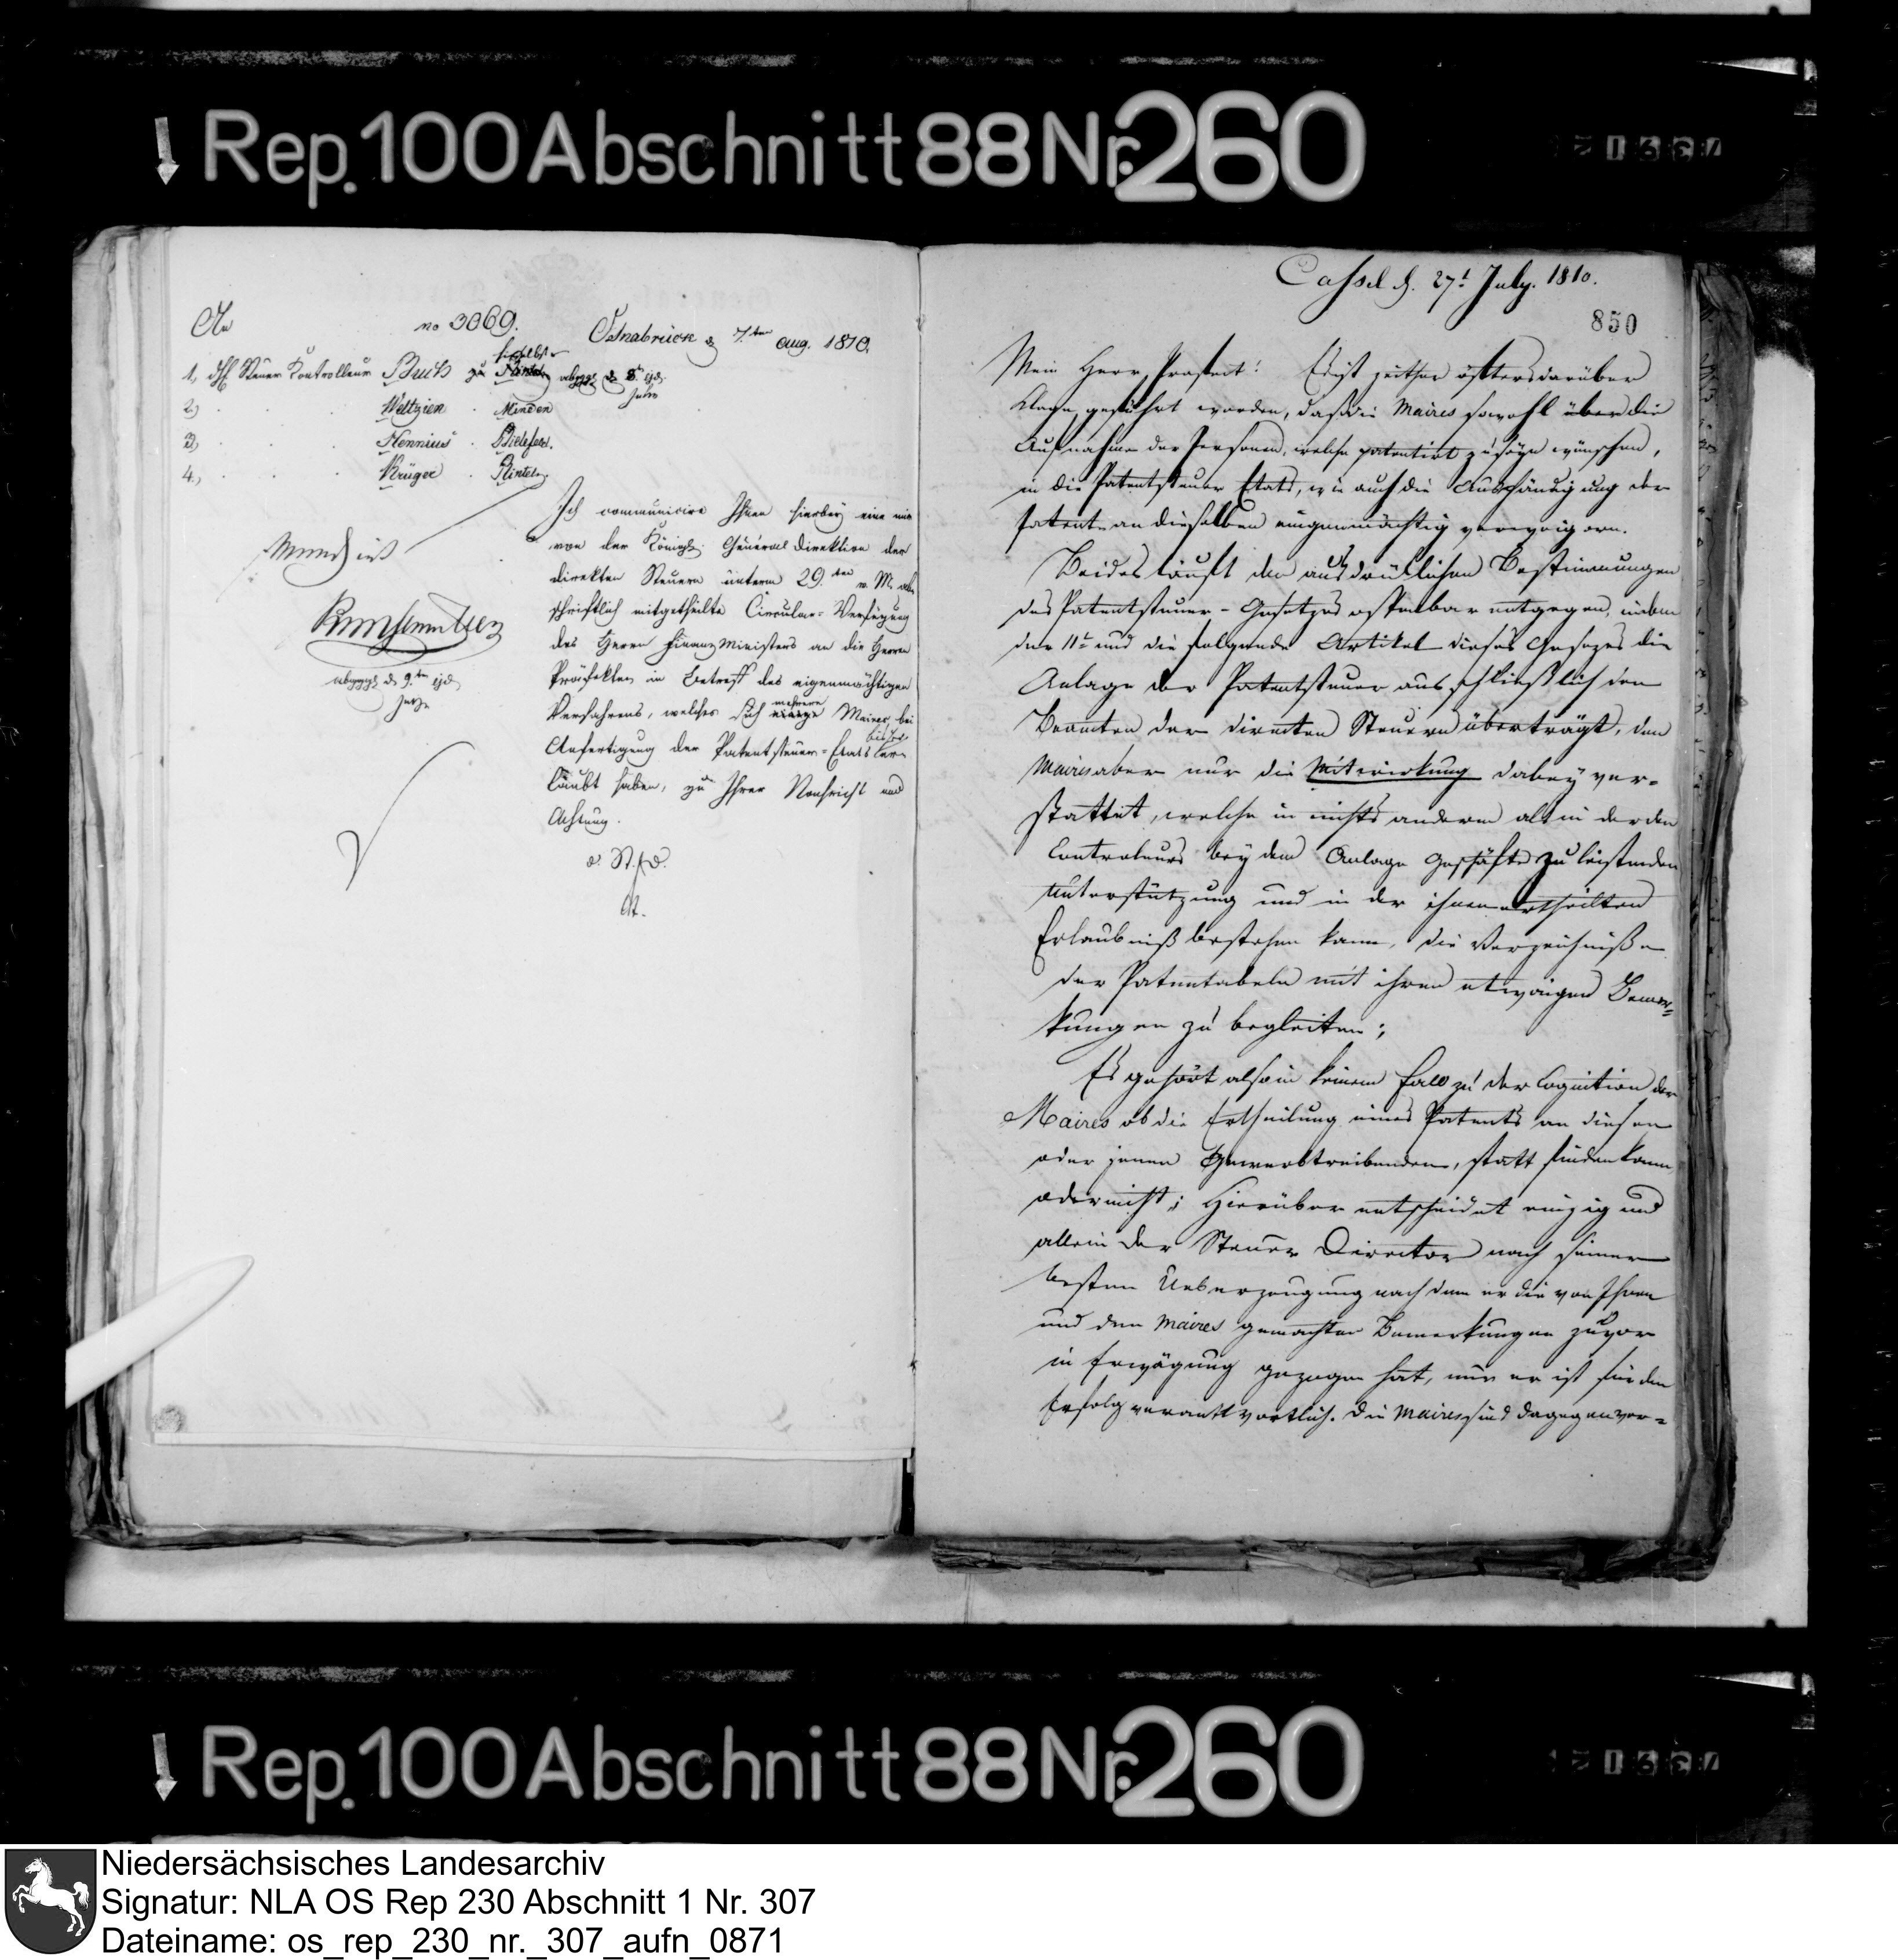 Rep. 100 Abschnitt 88 Nr. 260
An
no 3069.
Osnabrück d. 7.ten Aug. 1810.
1, dH. Steuer Kontrolleur Bruch zu hieselbst
2) Weltzien Minden
3) Hennius Bielefeld.
4., Krüger Rinteln
Ich communicire Ihnen hierbey eine mir
von der Königl. General Direktion der
direkten Steuern unterm 29.ten v. M. ab
schriftlich mitgetheilte Circular-Verfügung
des Herrn Finanz Ministers an die Herren
Präfekten in Betreff des eigenmächtigen
Verfahrens, welches sich mehrere Maires bei
Anfertigung der Patentsteuer-Etats bisher er-
laubt haben, zu Ihrer Nachricht und
Achtung.
d. St. D.
Mundirt
abgegl. d. 9.ten
Cassel d. 27t July. 1810.
850
Mein Herr Präfect! Es ist zeither öfters darüber
Klage geführt worden, daß die Maires sowohl über die
Aufnahme der Personen, welche patentirt zu seyn wünschen,
in die Patentsteuer Etats, wie auch die Aushändigung der
Patente an dieselben eigenmächtig verweigern.
Beides läuft den ausdrücklichen Bestimmungen
des Patentsteuer-Gesetzes offenbar entgegen, indem
der 11te und die folgende Artikel dieses Gesezes die
Anlage der Patentsteuer ausschließlich den
Beamten der directen Steuern überträgt, den
Maires aber nur die Mitwirkung dabey ver-
stattet, welche in nichts anderm als in der den
Controleurs bey dem Anlage Geschäfte zu leistenden
Unterstützung und in der ihnen ertheilten
Erlaubniß bestehen kann, die Verzeichniße
der Patentabeln mit ihren etwaigen Bemer=
kungen zu begleiten;
Es gehört also in keinem Fall zu der Cognition der
Maires ob die Ertheilung eines Patents an diesen
oder jenen Gewerbtreibenden, statt finden kann
oder nicht; Hierüber entscheidet einzig und
allein der Steuer Director nach seiner
besten Ueberzeugung nach dem er die von Ihnen
und den Maires gemachten Bemerkungen zuvor
in Erwägung gezogen hat, nur er ist für den
Erfolg verantwortlich. Die Maires sind dagegen ver=
Rep. 100 Abschnitt 88 Nr. 260
Niedersächsisches Landesarchiv
Signatur: NLA OS Rep 230 Abschnitt 1 Nr. 307
Dateiname: os_rep_230_nr._307_aufn_0871